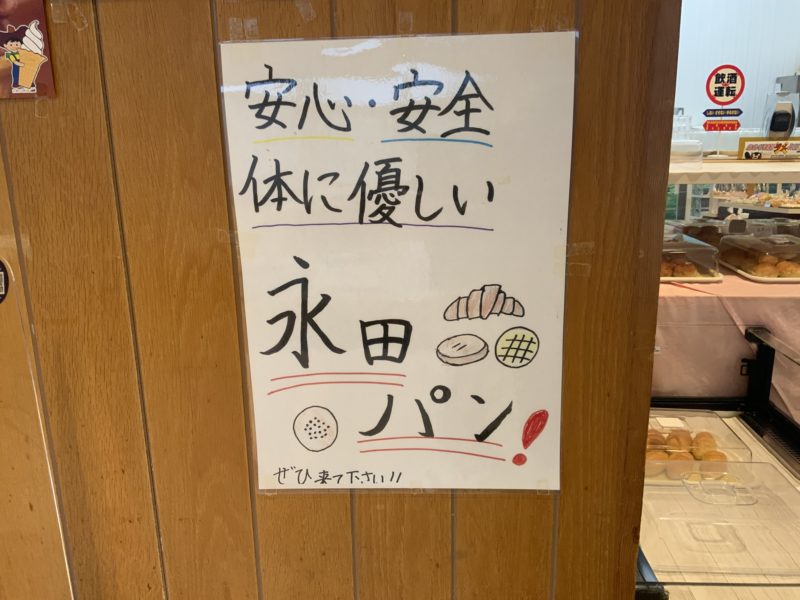 安心・安全
体に優しい
永田
パン!
ぜひ来て下さい!!
飲酒
運転